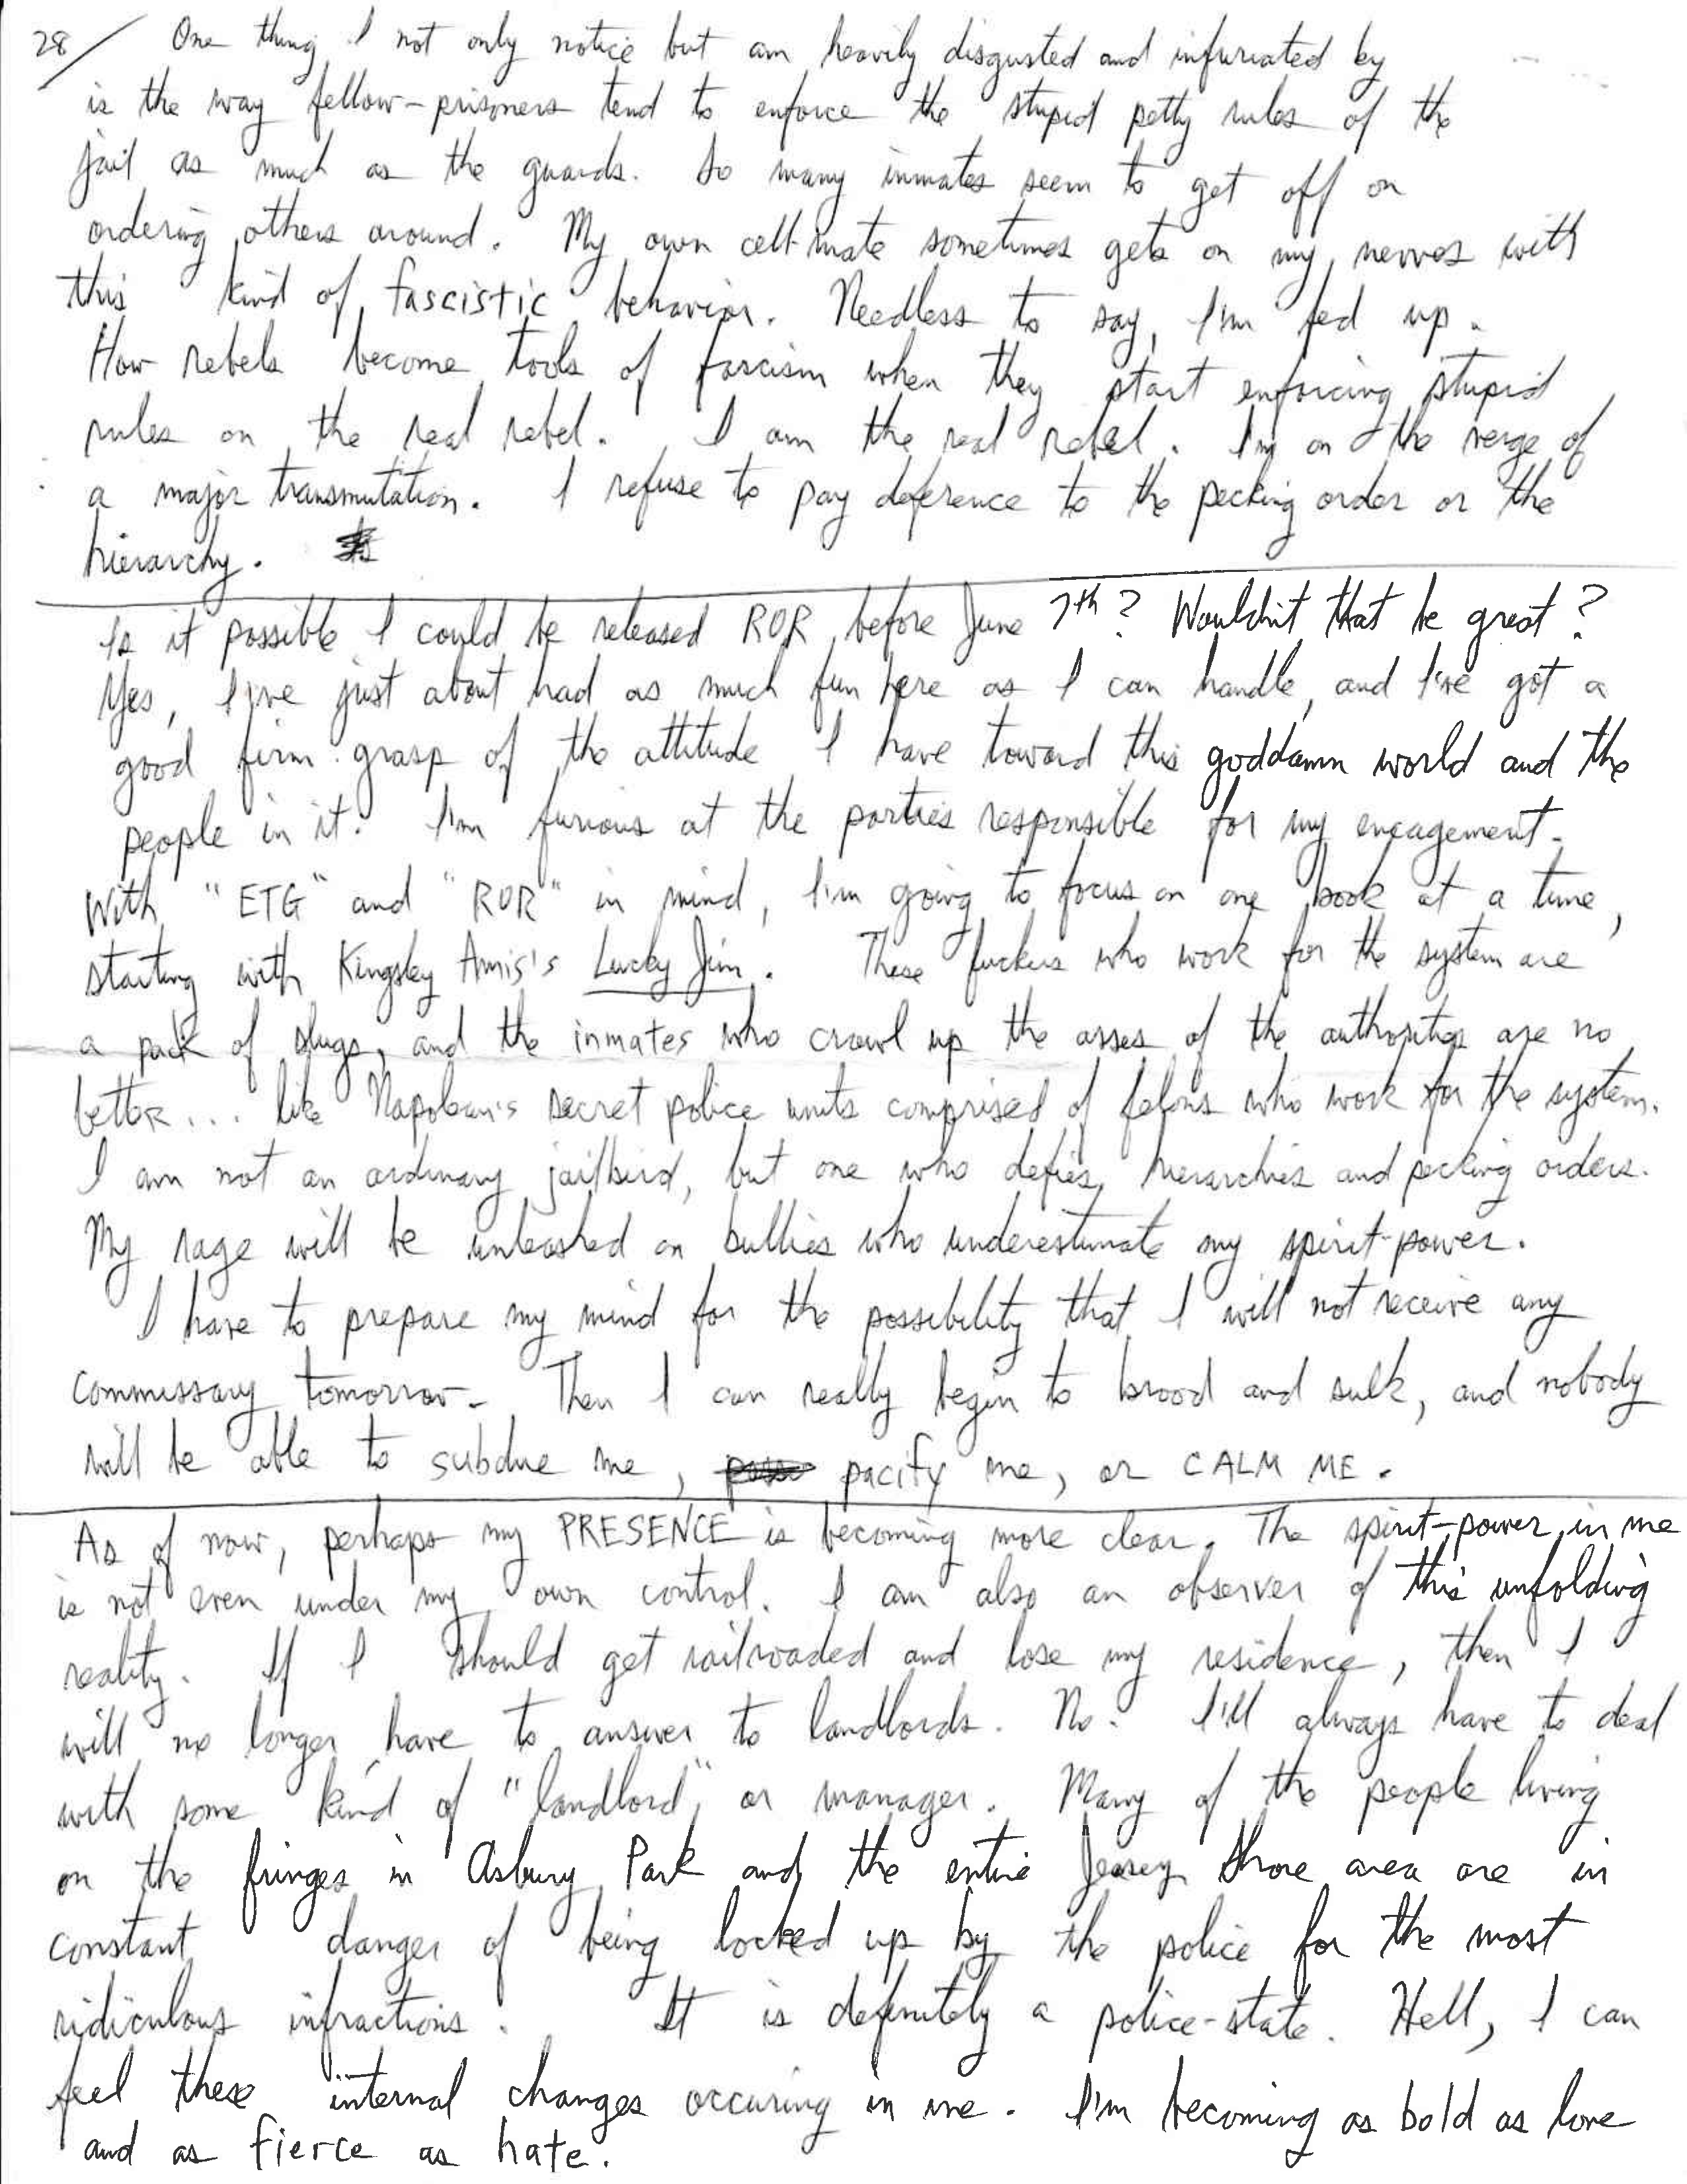 28/ One thing I not only notice but am heavily disgusted and infuriated by
is the way fellow-prisoners tend to enforce the stupid petty rules of the
jail as much as the guards. So many inmates seem to get off on
ordering others around. My own cell-mate sometimes gets on my nerves with
this kind of fascistic behavior. Needless to say, I'm fed up.
How rebels become tools of fascism when they start enforcing stupid
rules on the real rebel. I am the real rebel. I'm on the verge of
a major transmutation. I refuse to pay deference to the pecking order or the
hierarchy.
Is it possible I could be released ROR before June 7th? Wouldn't that be great?
Yes, I've just about had as much fun here as I can handle, and I've got a
good firm grasp of the attitude I have toward this goddamn world and the
people in it. I'm furious at the parties responsible for my encagement.
With "ETG" and "ROR" in mind, I'm going to focus on one book at a time,
starting with Kingsley Amis's Lucky Jim. These fuckers who work for the system are
a pack of slugs, and the inmates who crawl up the asses of the authorities are no
better... like Napoleon's secret police units comprised of felons who work for the system.
I am not an ordinary jailbird, but one who defies hierarchies and pecking orders.
My rage will be unleashed on bullies who underestimate my spirit-power.
I have to prepare my mind for the possibility that I will not receive any
commissary tomorrow. Then I can really begin to brood and sulk, and nobody
will be able to subdue me, pacify me, or CALM ME.
As of now, perhaps my PRESENCE is becoming more clear. The spirit-power in me
is not even under my own control. I am also an observer of this unfolding
reality. If I should get railroaded and lose my residence, then I
will no longer have to answer to landlords. No. I'll always have to deal
with some kind of "landlord" or manager. Many of the people living
on the fringes in Asbury Park and the entire Jersey Shore area are in
constant danger of being locked up by the police for the most
ridiculous infractions. It is definitely a police-state. Hell, I can
feel these internal changes occuring in me. I'm becoming as bold as love
and as fierce as hate.